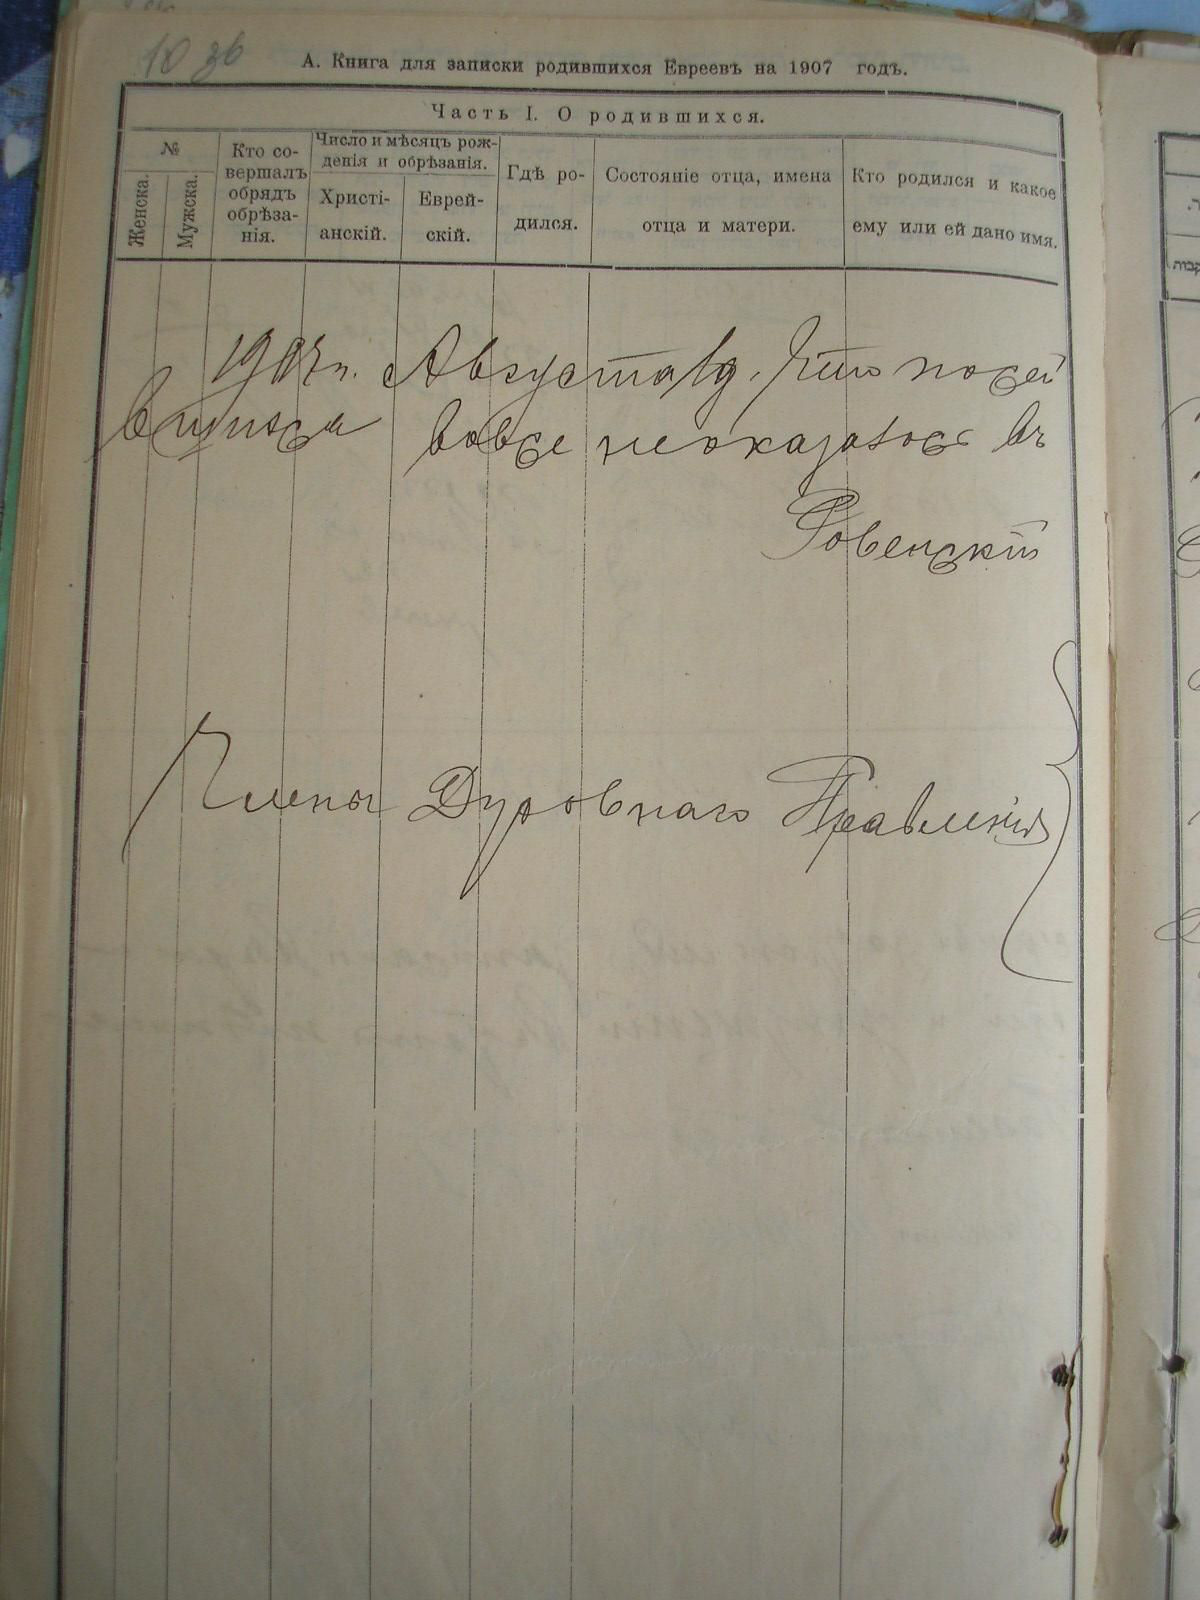 10 36
А. Книга для записки родившихся Евреевъ на 1907 годъ.
Часть I. О родившихся.
№
Женска.
Мужска.
Кто со-
вершалъ
обрядъ
обрѣза-
нія.
Число и мѣсяцъ рож-
денія и обрѣзанія.
Христі-
анскій.
Еврей-
скій.
Гдѣ ро-
дился.
Состояніе отца, имена
отца и матери.
Кто родился и какое
ему или ей дано имя.
1907 г. Августа 1 д. Что по сей
вовсе неоказалось въ
Ровенскій
Члены Духовнаго Правленія